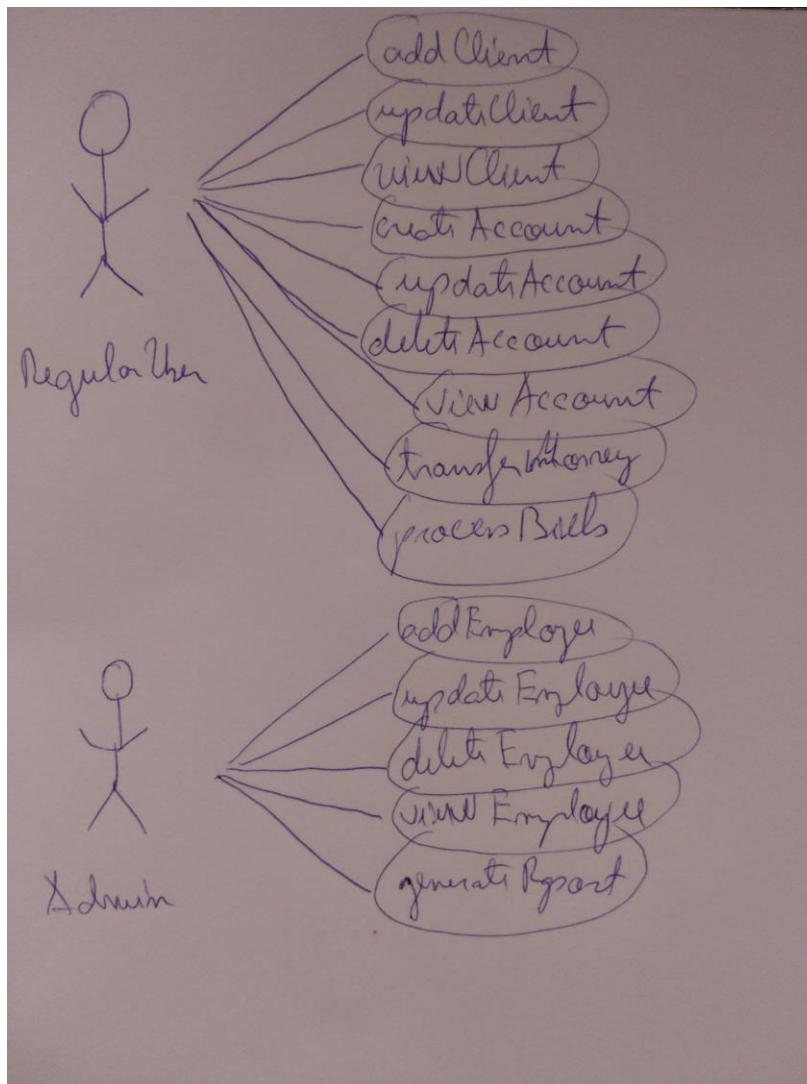 addClient
updateClient
viewClient
createAccount
updateAccount
deleteAccount
RegularUser
viewAccount
transferMoney
processBills
addEmployee
updateEmployee
deleteEmployee
viewEmployee
generateReport
Admin